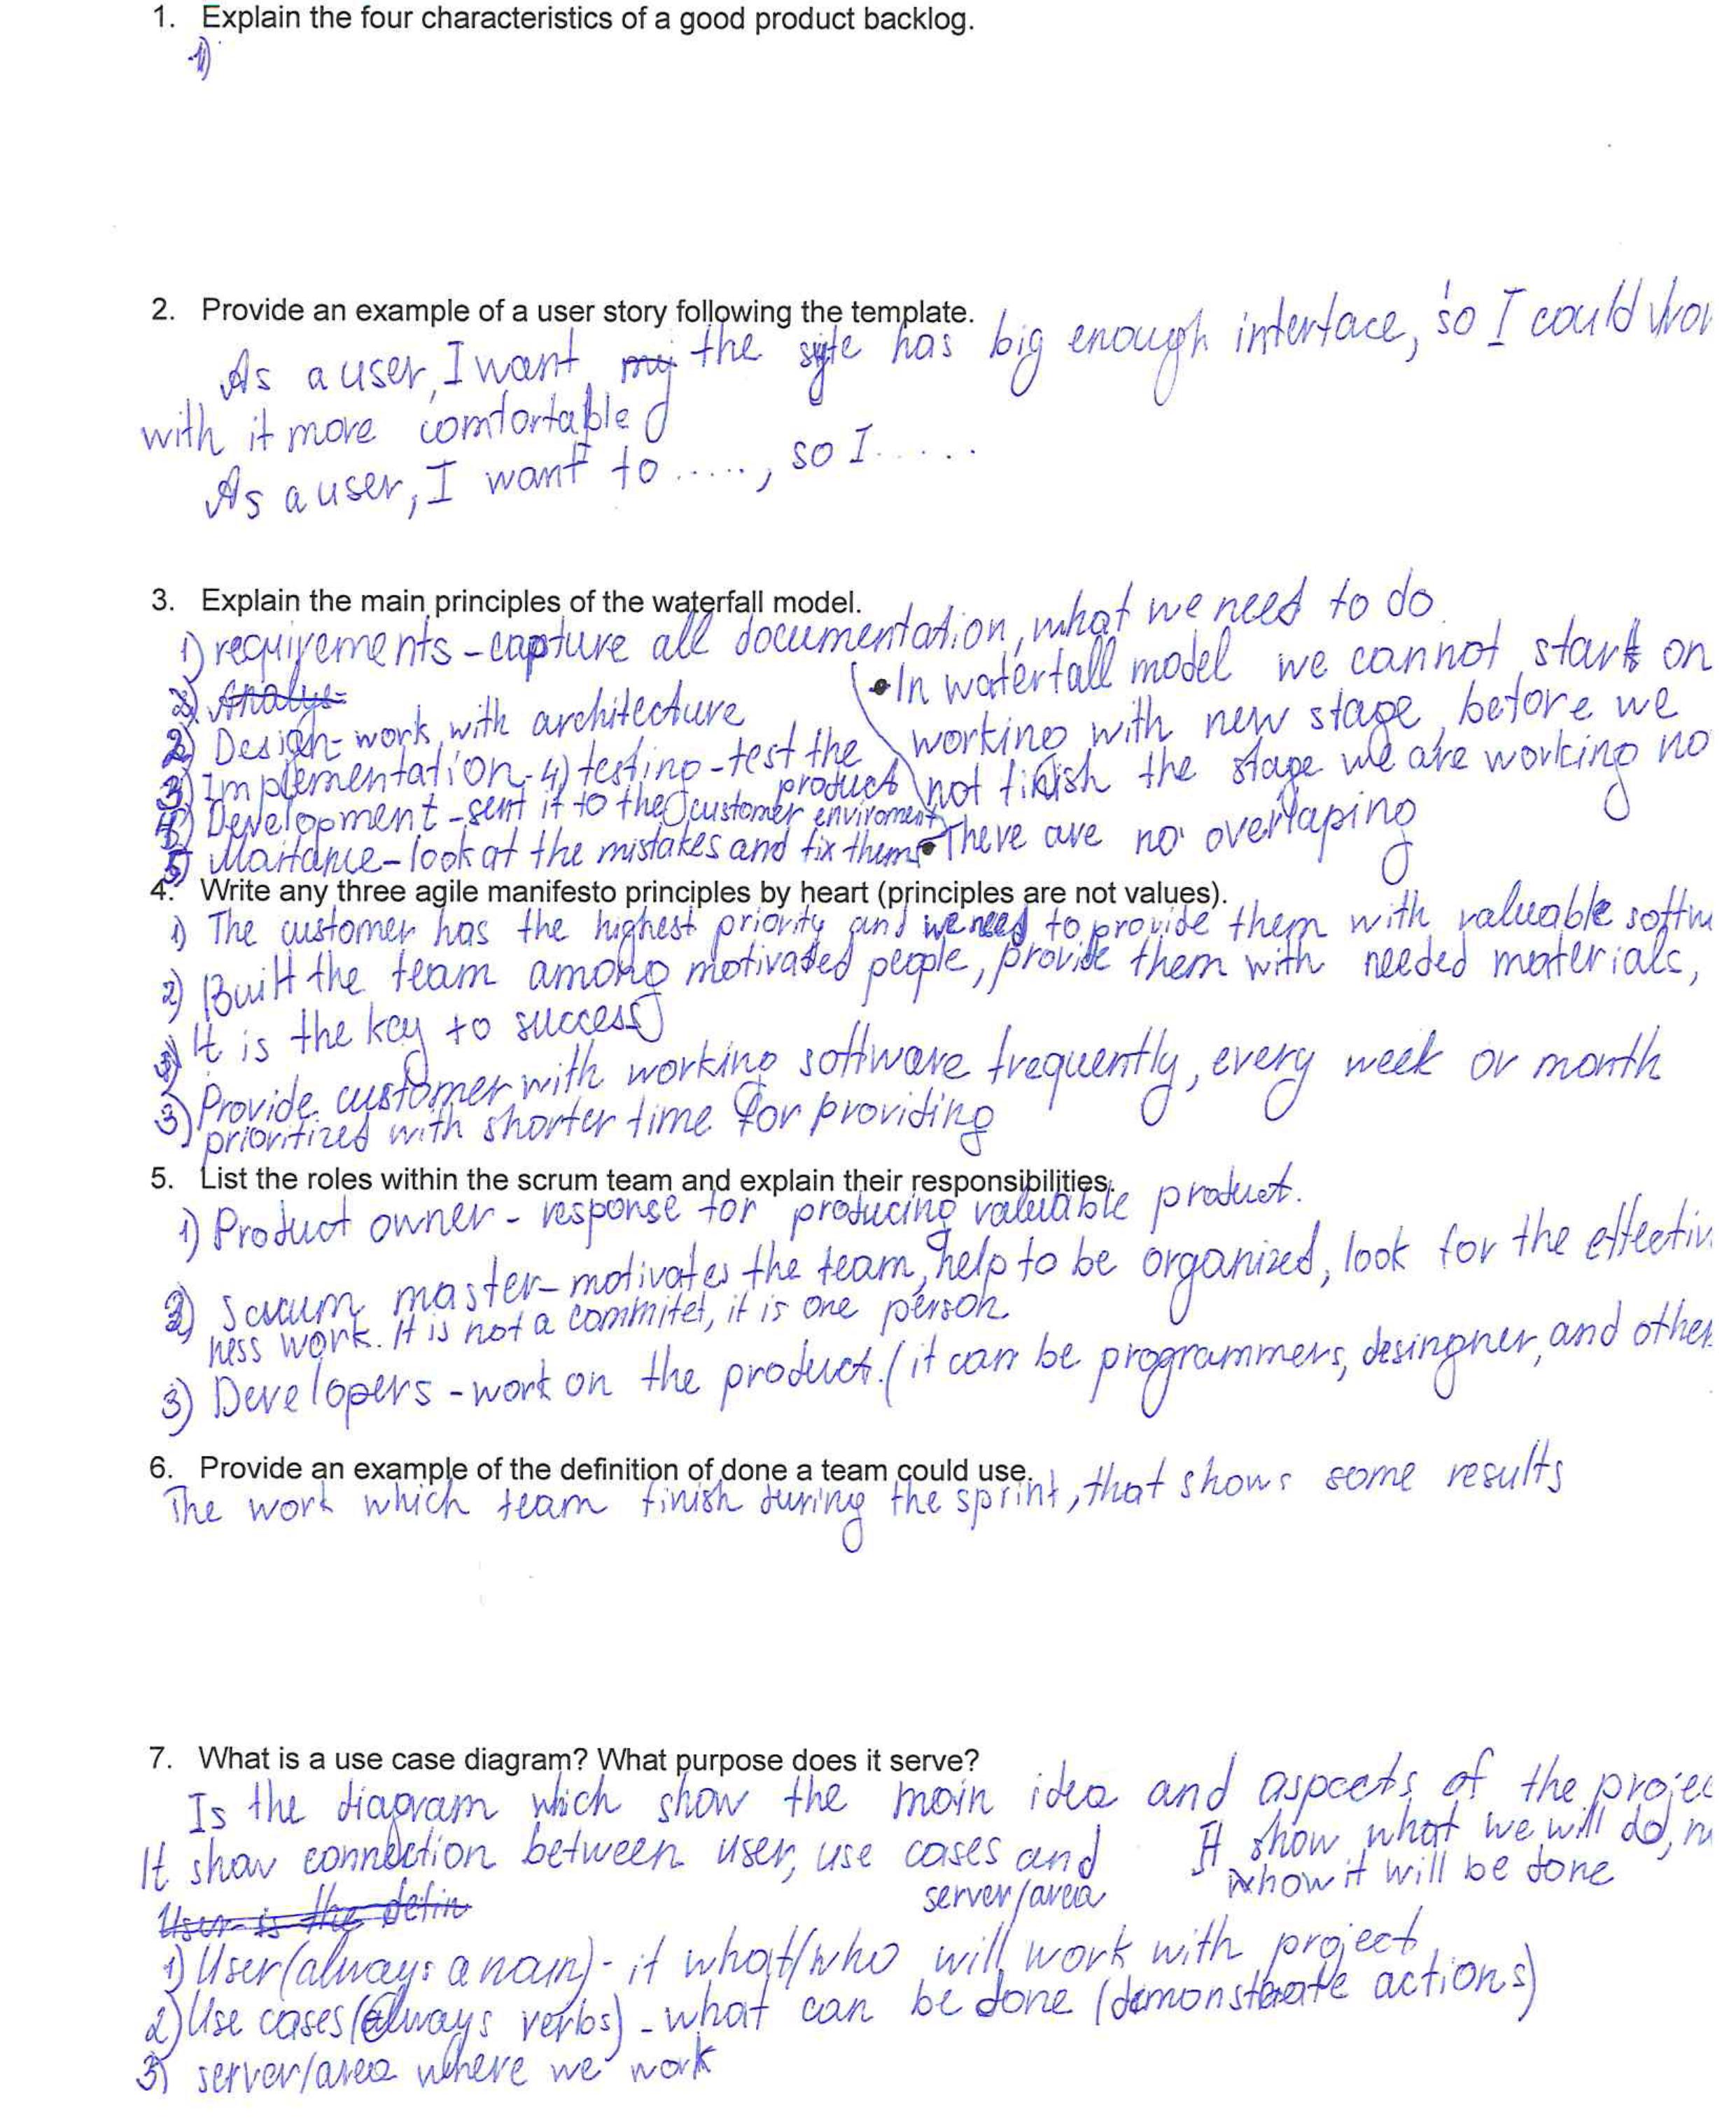 1. Explain the four characteristics of a good product backlog.
1)
2. Provide an example of a user story following the template.
As a user, I want the syte has big enough interface, so I could wor
with it more comfortable
As a user, I want to ....., so I.....
3. Explain the main principles of the waterfall model.
1) requirements - capture all documentation, what we need to do
2) Analys-
2) Design - work with architecture
3) Implementation - 4) testing - test the product
5) Development - sent it to the customer enviroment
Maitance - look at the mistakes and fix them
• In waterfall model we cannot start on
working with new stage before we
not finish the stage we are working no
• There are no overlaping
4. Write any three agile manifesto principles by heart (principles are not values).
1) The customer has the highest priority and we need to provide them with valuable softw
2) Built the team among motivated people, provide them with needed materials,
It is the key to success
3) Provide customer with working software frequently, every week or month
prioritized with shorter time for providing
5. List the roles within the scrum team and explain their responsibilities.
1) Product owner - response for producing valuable product.
2) Scrum master - motivates the team, help to be organized, look for the effectiv
ness work. It is not a commitet, it is one person.
3) Developers - work on the product. (it can be programmers, desingner, and other
6. Provide an example of the definition of done a team could use.
The work which team finish during the sprint, that shows some results
7. What is a use case diagram? What purpose does it serve?
Is the diagram which show the main idea and aspcets of the projec
It show connection between user, use cases and server/area
It show what we will do, n
how it will be done
User is the defin
1) User (always a noun) - it what/who will work with project
2) Use cases (always verbs) - what can be done (demonstrate actions)
3) server/area where we work